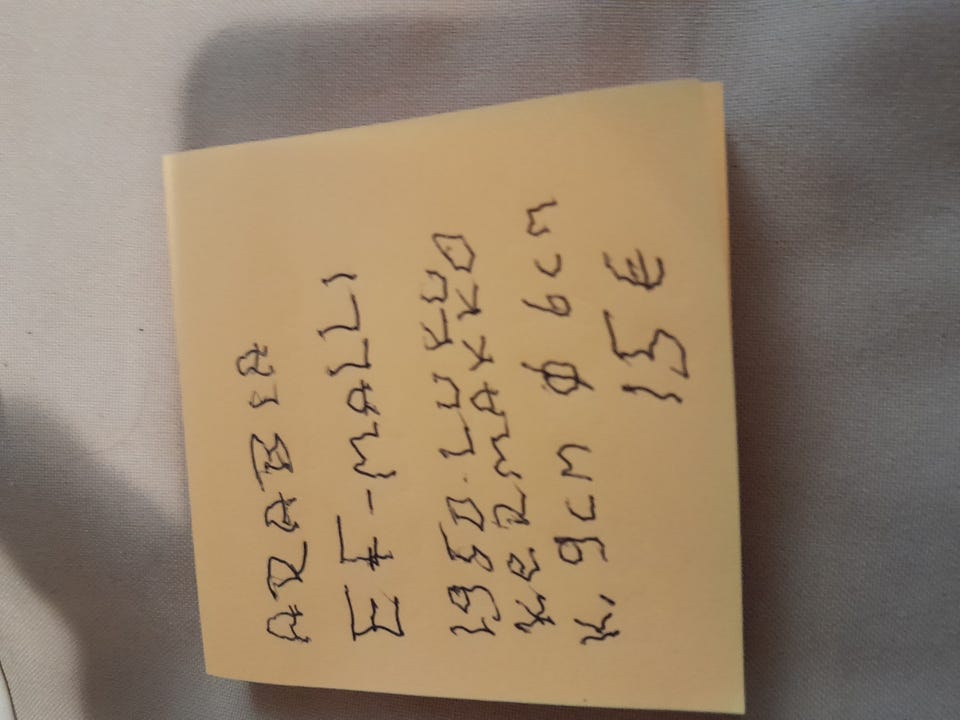 ARABIA
EF-MALLI
1950-LUKU
KERMAKKO
K. 9CM Ø 6CM
15 €